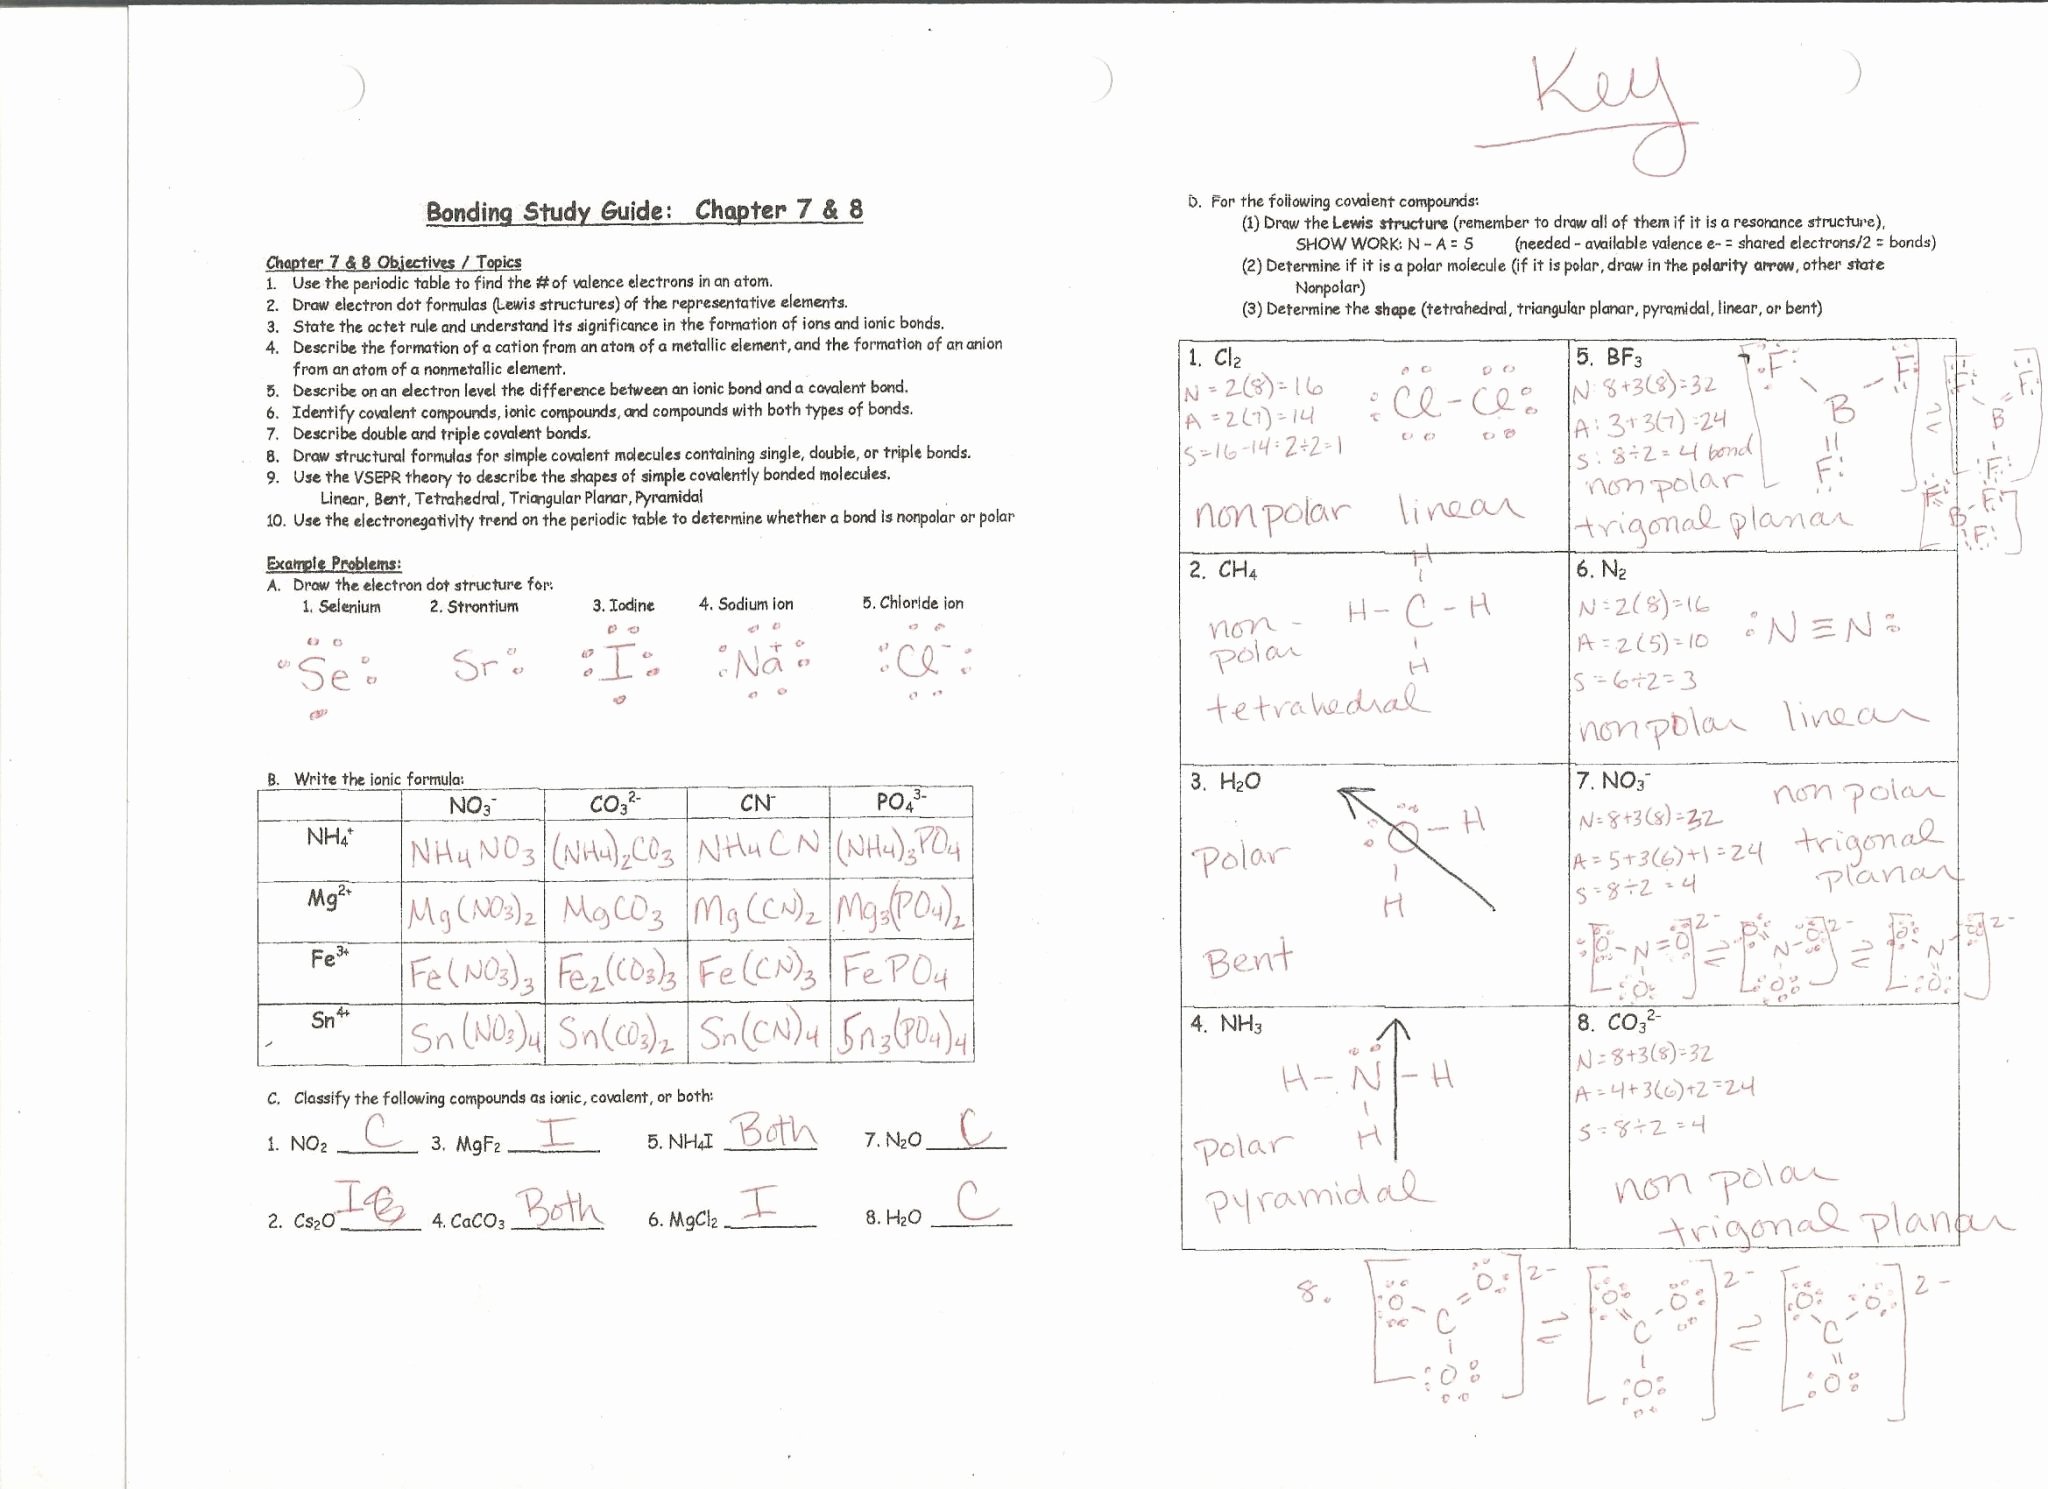 Key
Bonding Study Guide: Chapter 7 & 8
Chapter 7 & 8 Objectives / Topics
1. Use the periodic table to find the # of valence electrons in an atom.
2. Draw electron dot formulas (Lewis structures) of the representative elements.
3. State the octet rule and understand its significance in the formation of ions and ionic bonds.
4. Describe the formation of a cation from an atom of a metallic element, and the formation of an anion
from an atom of a nonmetallic element.
5. Describe on an electron level the difference between an ionic bond and a covalent bond.
6. Identify covalent compounds, ionic compounds, and compounds with both types of bonds.
7. Describe double and triple covalent bonds.
8. Draw structural formulas for simple covalent molecules containing single, double, or triple bonds.
9. Use the VSEPR theory to describe the shapes of simple covalently bonded molecules.
Linear, Bent, Tetrahedral, Triangular Planar, Pyramidal
10. Use the electronegativity trend on the periodic table to determine whether a bond is nonpolar or polar
Example Problems:
A. Draw the electron dot structure for:
1. Selenium 2. Strontium 3. Iodine 4. Sodium ion 5. Chloride ion
Se Sr I Na⁺ Cl⁻
B. Write the ionic formula:
NO₃⁻ CO₃²⁻ CN⁻ PO₄³⁻
NH₄⁺ NH4NO3 (NH4)₂CO3 NH4CN (NH4)₃PO4
Mg²⁺ Mg(NO3)₂ MgCO3 Mg(CN)₂ Mg₃(PO4)₂
Fe³⁺ Fe(NO3)₃ Fe₂(CO3)₃ Fe(CN)₃ FePO4
Sn⁴⁺ Sn(NO3)₄ Sn(CO3)₂ Sn(CN)₄ Sn₃(PO4)₄
C. Classify the following compounds as ionic, covalent, or both:
1. NO₂ C 3. MgF₂ I 5. NH₄I Both 7. N₂O C
2. Cs₂O I 4. CaCO₃ Both 6. MgCl₂ I 8. H₂O C
D. For the following covalent compounds:
(1) Draw the Lewis structure (remember to draw all of them if it is a resonance structure),
SHOW WORK: N - A = S (needed - available valence e- = shared electrons/2 = bonds)
(2) Determine if it is a polar molecule (if it is polar, draw in the polarity arrow, other state
Nonpolar)
(3) Determine the shape (tetrahedral, triangular planar, pyramidal, linear, or bent)
1. Cl₂
N = 2(8)=16
A = 2(7)=14
S=16-14=2÷2=1
Cl - Cl
nonpolar linear
5. BF₃
N: 8+3(8)=32
A: 3+3(7)=24
S: 8÷2=4 bond
nonpolar
trigonal planar
F F
B
F
F F
B
F
F F
B
F
2. CH₄
H
H - C - H
H
non-
polar
tetrahedral
6. N₂
N=2(8)=16
A=2(5)=10
S=6÷2=3
:N≡N:
nonpolar linear
3. H₂O
O - H
H
Polar
Bent
7. NO₃⁻
non polar
N=8+3(8)=32
trigonal
planar
A=5+3(6)+1=24
S=8÷2=4
[O - N = O O]²⁻ ⇌ [O N - O O]²⁻ ⇌ [O N - O O]²⁻
4. NH₃
H - N - H
H
polar
pyramidal
8. CO₃²⁻
N=8+3(8)=32
A=4+3(6)+2=24
S=8÷2=4
non polar
trigonal planar
8. [O C = O O]²⁻ ⇌ [O = C O O]²⁻ ⇌ [O C O O]²⁻